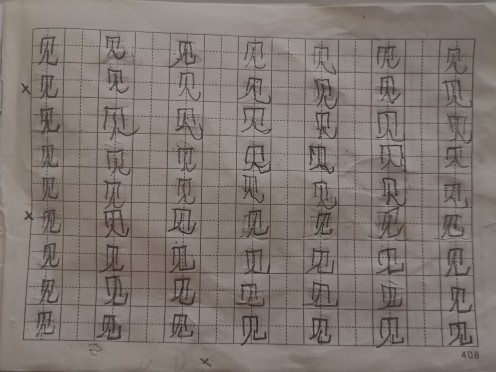 见 见 见 见 见 见 见
见 见 见 见 见 见 见
见 见 见 见 见 见 见
见 见 见 见 见 见 见
见 见 见 见 见 见 见
见 见 见 见 见 见 见
见 见 见 见 见 见 见
见 见 见 见 见 见 见
见 见 见 见 见 见 见
408